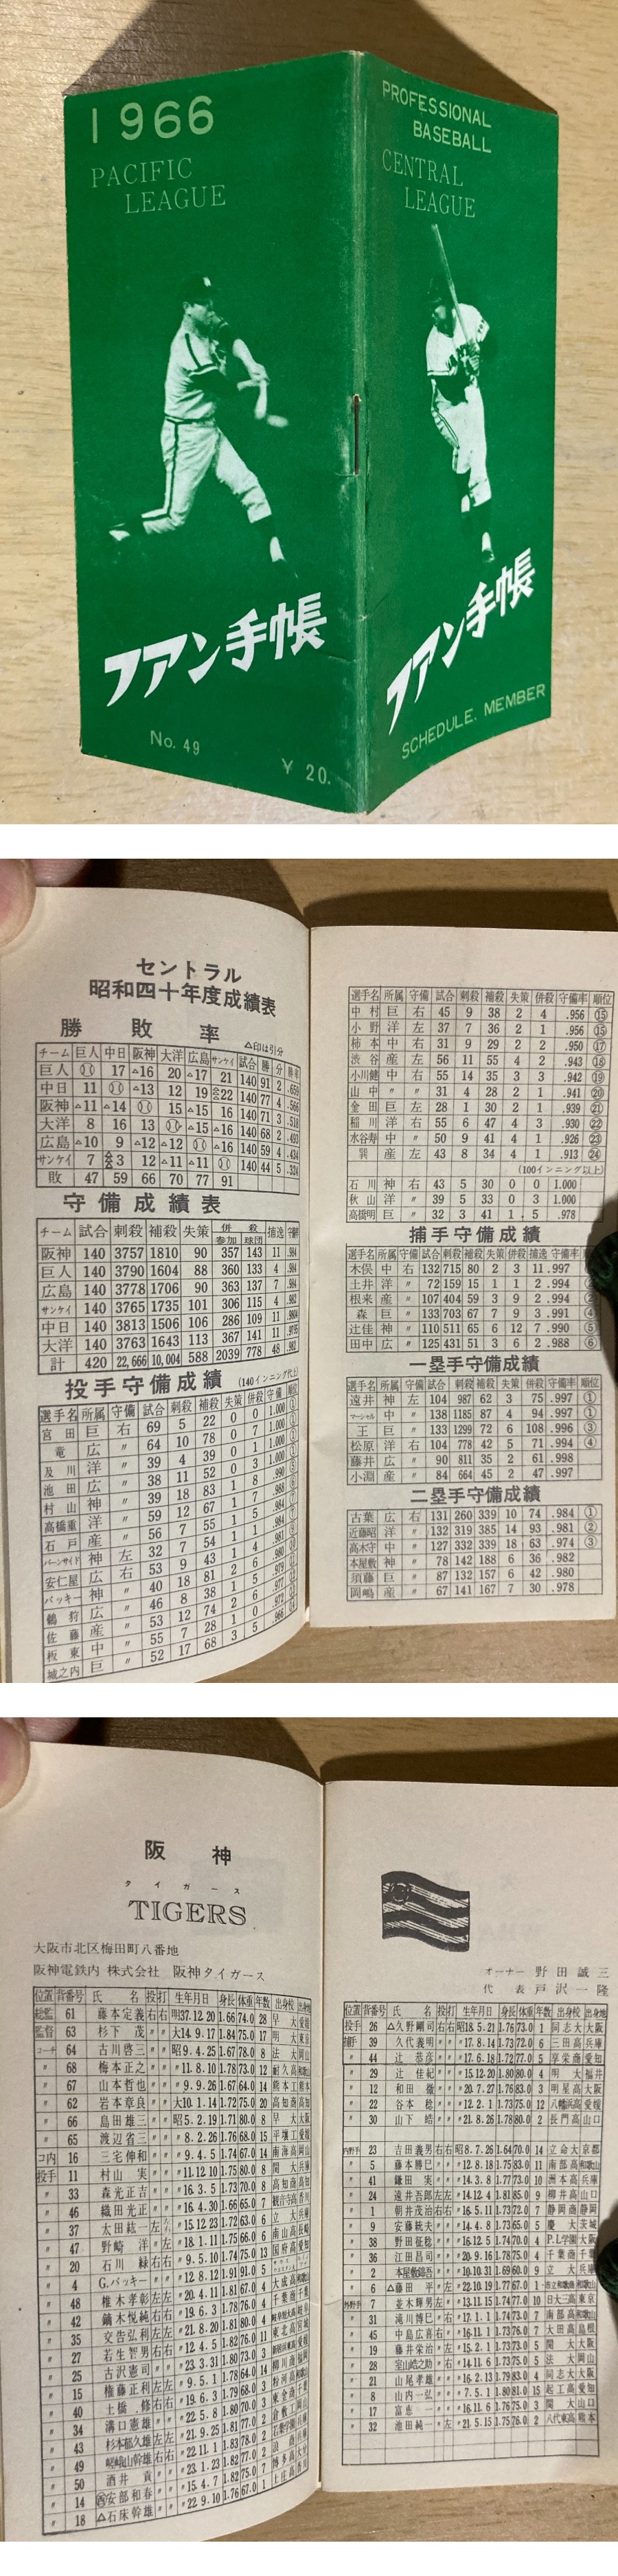 1966
PACIFIC
LEAGUE
フアン手帳
No. 49
¥ 20.
PROFESSIONAL
BASEBALL
CENTRAL
LEAGUE
フアン手帳
SCHEDULE. MEMBER
セントラル
昭和四十年度成績表
勝敗率 △印は引分
チーム 巨人 中日 阪神 大洋 広島 サンケイ 試合 勝 分 勝率
巨人 17 △16 20 △17 21 140 91 2 .659
中日 11 △14 12 19 22 140 77 4 .566
阪神 △11 △14 15 △15 16 140 71 3 .518
大洋 8 16 13 △15 △16 140 68 2 .493
広島 △10 9 △12 △12 △16 140 59 4 .434
サンケイ 7 3 12 △11 △11 140 44 5 .324
敗 47 59 66 70 77 91
守備成績表
チーム 試合 刺殺 補殺 失策 併殺 参加 球団 捕逸 守備率
阪神 140 3757 1810 90 357 143 11 .984
巨人 140 3790 1604 88 360 133 4 .984
広島 140 3778 1706 90 363 137 7 .984
サンケイ 140 3765 1735 101 306 115 4 .982
中日 140 3813 1506 106 286 109 11
大洋 140 3763 1643 113 367 141 11
計 420 22,666 10,004 588 2039 778 48 .982
投手守備成績 (140イニング代上)
選手名 所属 守備 試合 刺殺 補殺 失策 併殺 守備 順位
宮田 巨 右 69 5 22 0 0 1.000
竜 広 〃 64 10 78 0 7 1.000
及川 洋 〃 39 4 39 0 0 1.000
池田 広 〃 38 11 52 0 3 1.000
村山 神 〃 39 18 83 1 8 .990
高橋重 洋 〃 59 12 67 1 7
石戸 産 〃 56 7 55 1 5
バーンサイド 神 左 32 7 54 1 4
安仁屋 広 右 53 9 43 1 1
バッキー 神 〃 40 18 81 2 6
鶴狩 広 〃 46 8 38 1 5
佐藤 産 〃 53 12 74 2 6
板東 中 〃 55 7 28 1 0
城之内 巨 〃 52 17 68 3 5
選手名 所属 守備 試合 刺殺 補殺 失策 併殺 守備率 順位
中村 巨 右 45 9 38 2 4 .956 ⑮
小野 洋 左 37 7 36 2 1 .956 ⑮
柿本 中 右 31 9 29 2 2 .950 ⑰
渋谷 産 左 56 11 55 4 2 .943 ⑱
小川健 中 右 55 14 35 3 3 .942 ⑲
山中 〃 〃 31 4 28 2 1 .941 ⑳
金田 巨 左 28 1 30 2 1 .939 ㉑
稲川 洋 右 55 6 47 4 3 .930 ㉒
水谷寿 中 〃 50 9 41 4 1 .926 ㉓
巽 産 左 43 8 34 4 1 .913 ㉔
(100イニング以上)
石川 神 右 43 5 30 0 0 1.000
秋山 洋 〃 39 5 33 0 3 1.000
高橋明 巨 〃 32 3 41 1 5 .978
捕手守備成績
選手名 所属 守備 試合 刺殺 補殺 失策 併殺 捕逸 守備率 順位
木俣 中 右 132 715 80 2 3 11 .997
土井 洋 〃 72 159 15 1 1 2 .994
根来 産 〃 107 404 59 3 9 2 .994
森 巨 〃 133 703 67 7 9 3 .991 ④
辻佳 神 〃 110 511 65 6 12 7 .990 ⑤
田中 広 〃 125 431 51 3 6 2 .988 ⑥
一塁手守備成績
選手名 所属 守備 試合 刺殺 補殺 失策 併殺 守備率 順位
遠井 神 左 104 987 62 3 75 .997 ①
マーシャル 中 〃 138 1185 87 4 94 .997 ①
王 巨 〃 133 1299 72 6 108 .996 ③
松原 洋 右 104 778 42 5 71 .994 ④
藤井 広 〃 90 811 35 2 61 .998
小淵 産 〃 84 664 45 2 47 .997
二塁手守備成績
古葉 広 右 131 260 339 10 74 .984 ①
近藤昭 洋 〃 132 319 385 14 93 .981 ②
高木守 中 〃 127 332 339 18 63 .974 ③
本屋敷 神 〃 78 142 188 6 36 .982
須藤 巨 〃 87 132 157 6 42 .980
岡嶋 産 〃 67 141 167 7 30 .978
阪神
タイガース
TIGERS
大阪市北区梅田町八番地
阪神電鉄内 株式会社 阪神タイガース
位置 背番号 氏名 投 打 生年月日 身長 体重 年数 出身校 出身地
総監 61 藤本定義 右 右 明37.12.20 1.66 74.0 28 早大 愛媛
監督 63 杉下茂 〃 〃 大14.9.17 1.84 75.0 17 明大 東京
コーチ 64 古川啓三 〃 〃 昭9.4.25 1.67 78.0 法大 岡山
〃 68 梅本正之 〃 〃 〃11.8.10 1.78 73.0 12 耐久高 和歌山
〃 67 山本哲也 〃 〃 〃9.9.26 1.67 64.0 14 熊本工 熊本
〃 62 岩本章良 〃 〃 大10.1.14 1.72 75.0 20 高知商 高知
〃 66 島田雄三 〃 〃 昭5.2.19 1.71 80.0 早大
〃 65 渡辺省三 〃 〃 〃8.2.26 1.76 68.0 15
コ内 16 三宅伸和 〃 〃 〃9.4.5 1.74 67.0 14 南海高 岡山
投手 11 村山実 〃 〃 〃11.12.10 1.75 80.0 8 関大 兵庫
〃 33 森光正吉 〃 〃 〃16.3.5 1.73 70.0 8 高知商 高知
〃 46 織田光正 〃 〃 〃16.4.30 1.66 65.0 7 観音寺高 香川
〃 37 太田紘一 左 左 〃15.12.23 1.72 63.0 6 立大
〃 47 野崎洋 〃 右 〃18.1.11 1.75 66.0 6 南山高
〃 20 石川緑 右 右 〃9.5.10 1.74 75.0 13 国府高 愛知
〃 4 G.バッキー 〃 〃 〃12.8.12 1.91 91.0 5
〃 48 椎木孝彰 左 左 〃20.4.11 1.81 67.0 4
〃 42 鏑木悦純 右 右 〃19.6.3 1.78 76.0 4 千葉商 千葉
〃 35 交告弘利 左 左 〃21.8.20 1.81 80.0 4
〃 27 若生智男 右 右 〃12.4.5 1.82 76.0 11 東北高 宮城
〃 25 古沢憲司 〃 〃 〃23.3.31 1.80 73.0 3
〃 15 権藤正利 左 左 〃9.5.1 1.78 64.0 14 柳川商
〃 40 土橋修 右 右 〃19.6.3 1.79 68.0 3
〃 34 溝口憲雄 〃 〃 〃22.5.8 1.80 70.0 3
〃 43 杉本郁久雄 左 左 〃21.9.25 1.81 77.0 2
〃 49 嵯峨山幹雄 右 右 〃22.11.1 1.83 78.0 2
〃 50 酒井貢 〃 〃 〃23.1.23 1.82 77.0 2
〃 14 安部和春 〃 〃 〃15.4.7 1.82 75.0 7 博多高
〃 18 △石床幹雄 〃 〃 〃22.9.10 1.76 67.0 1 土庄高
オーナー 野田誠三
代表 戸沢一隆
位置 背番号 氏名 投 打 生年月日 身長 体重 年数 出身校 出身地
投手 26 △久野剛司 右 右 昭18.5.21 1.76 73.0 1 同志大 大阪
捕手 39 久代義明 〃 〃 〃17.8.14 1.73 72.0 6 三田高 兵庫
〃 44 辻恭彦 〃 〃 〃17.6.18 1.72 77.0 5 享栄商 愛知
〃 29 辻佳紀 〃 〃 〃15.12.20 1.80 80.0 4 明大 福井
〃 12 和田徹 〃 〃 〃20.7.27 1.76 83.0 3 明星高 大阪
〃 22 谷本稔 〃 〃 〃12.2.1 1.73 75.0 12 八幡浜高 愛媛
〃 30 山下皓 〃 〃 〃21.8.26 1.78 80.0 2 長門高 山口
内野手 23 吉田義男 右 右 昭8.7.26 1.64 70.0 14 立命大 京都
〃 5 藤本勝巳 〃 〃 〃12.8.18 1.75 83.0 11 南部高 和歌山
〃 41 鎌田実 〃 〃 〃14.3.8 1.77 73.0 10 洲本高 兵庫
〃 24 遠井吾郎 左 左 〃14.12.4 1.81 85.0 9 柳井高 山口
〃 1 朝井茂治 右 右 〃16.5.11 1.73 72.0 7 静岡商 静岡
〃 9 安藤統夫 〃 〃 〃14.4.8 1.73 65.0 5 慶大 茨城
〃 38 野田征稔 〃 〃 〃16.12.5 1.74 70.0 4 P.L学園 大阪
〃 36 江田昌司 〃 〃 〃20.9.16 1.78 75.0 4 千葉商 千葉
〃 2 本屋敷錦吾 〃 〃 〃10.10.31 1.69 60.0 9 立大 兵庫
〃 6 △藤田平 〃 左 〃22.10.19 1.77 67.0 1 市立和歌商 和歌山
外野手 7 並木輝男 左 左 〃13.11.15 1.74 77.0 10 日大三高 東京
〃 31 滝川博巳 〃 右 〃17.1.1 1.74 73.0 7 南部高 和歌山
〃 45 中島広喜 右 〃 〃16.11.1 1.73 76.0 7 大田高 島根
〃 19 藤井栄治 〃 左 〃15.2.1 1.73 73.0 5 関大 大阪
〃 28 室山皓之助 〃 右 〃14.11.6 1.73 75.0 5 法大 岡山
〃 21 山尾孝雄 〃 〃 〃16.2.13 1.79 83.0 4 同志大 大阪
〃 8 山内一弘 〃 〃 〃7.5.1 1.80 81.0 15 起工高 愛知
〃 17 富恵一 〃 〃 〃16.11.6 1.76 75.0 3 関大 山口
〃 32 池田純一 〃 左 〃21.5.15 1.75 76.0 2 八代東高 熊本